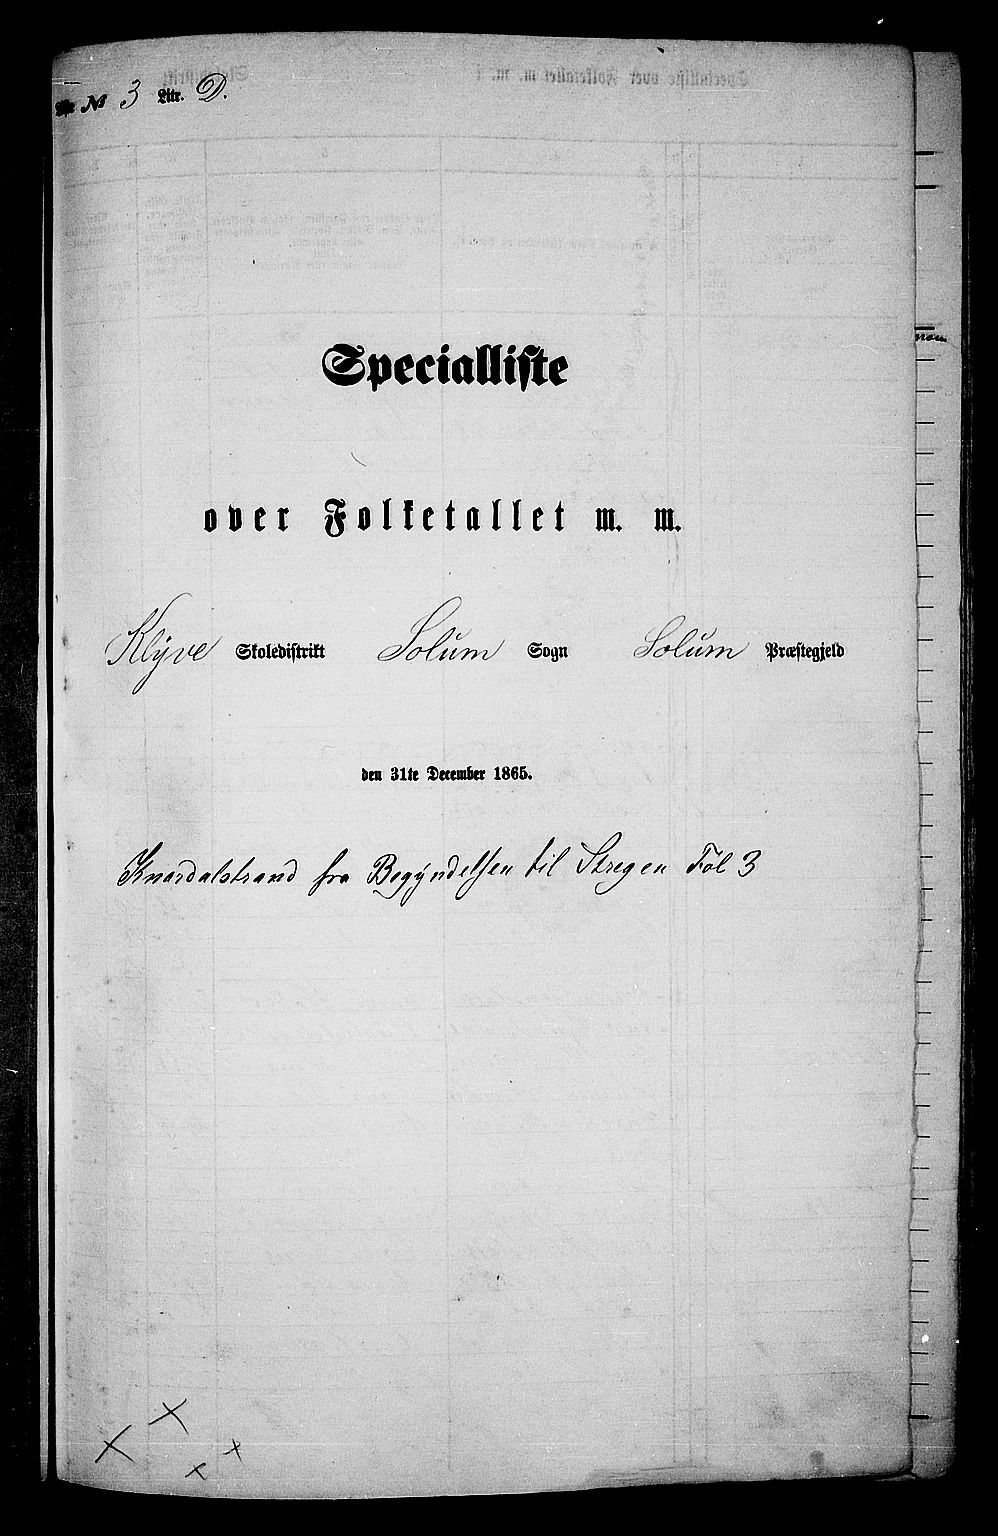 № 3 Litr. D.
Specialliste
over Folketallet m. m.
Klyve Skoledistrikt Solum Sogn Solum Præstegjeld
den 31te December 1865.
Knardalstrand fra Begyndelsen til Stregen Fol 3